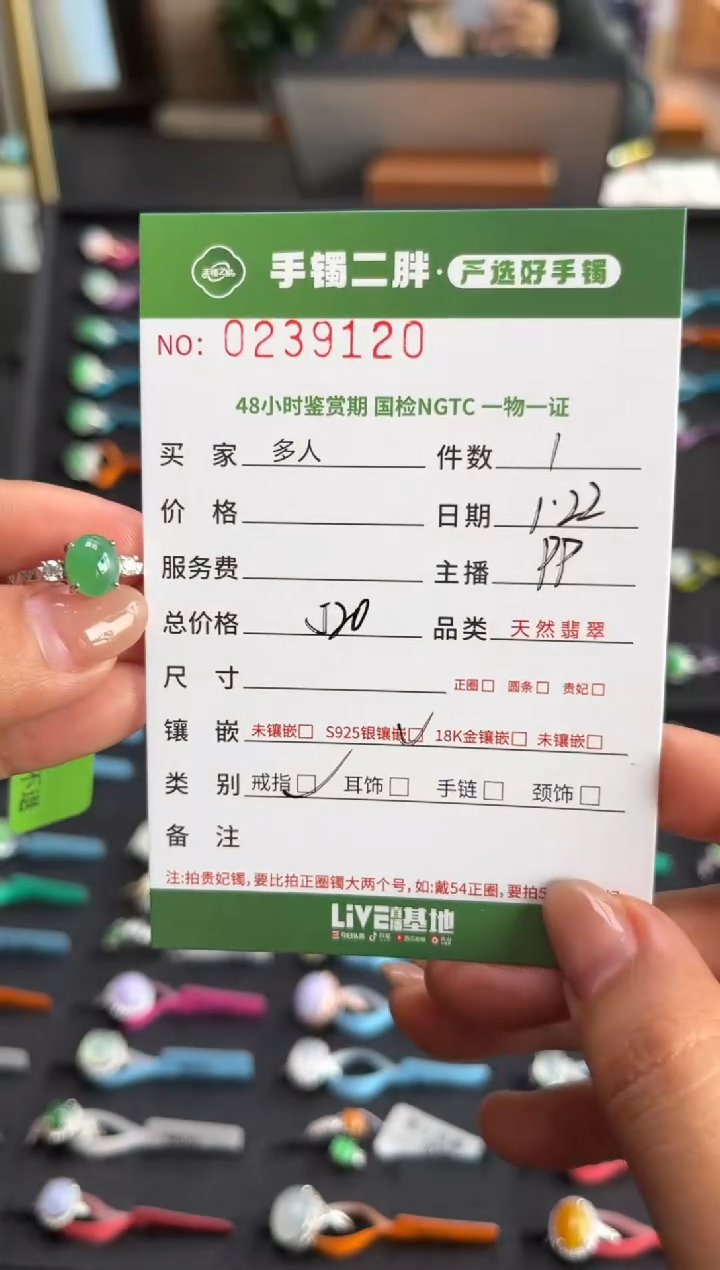 手镯二胖·严选好手镯
NO: 0239120
48小时鉴赏期 国检NGTC 一物一证
买家 多人 件数 1
价格 日期 1·22
服务费 主播 PP
总价格 520 品类 天然翡翠
尺寸 正圈□ 圆条□ 贵妃□
镶嵌 未镶嵌□ S925银镶嵌□ 18K金镶嵌□ 未镶嵌□
类别 戒指□ 耳饰□ 手链□ 颈饰□
备注
注:拍贵妃镯,要比拍正圈镯大两个号,如:戴54正圈,要拍5
LiVE直播基地